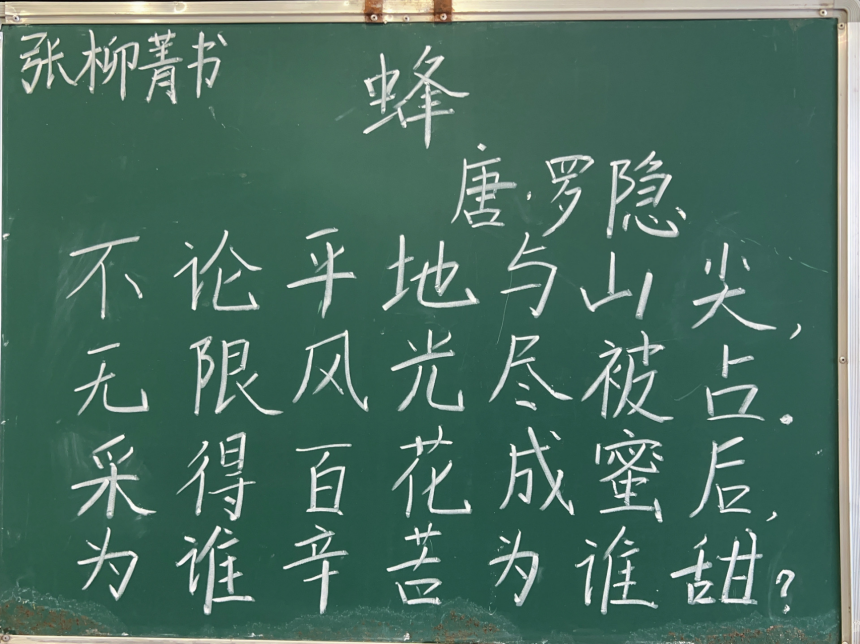 张柳菁书
蜂
唐·罗隐
不论平地与山尖，
无限风光尽被占.
采得百花成蜜后，
为谁辛苦为谁甜？